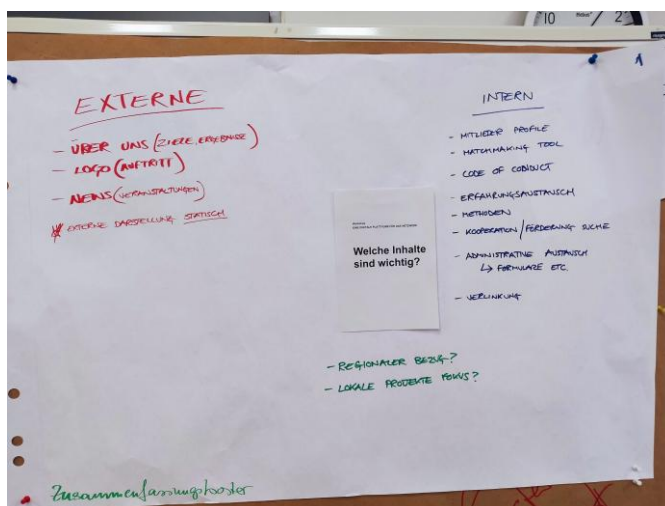 10
2
1
EXTERNE
- ÜBER UNS (ZIELE, ERGEBNISSE)
- LOGO (AUFTRITT)
- NEWS (VERANSTALTUNGEN)
EXTERNE DARSTELLUNG STATISCH
Welche Inhalte
sind wichtig?
INTERN
- MITGLIEDER PROFILE
- MATCHMAKING TOOL
- CODE OF CONDUCT
- ERFAHRUNGSAUSTAUSCH
- METHODEN
- KOOPERATION/FÖRDERUNG SUCHE
- ADMINISTRATIVE AUSTAUSCH
↳ FORMULARE ETC.
- VERLINKUNG
- REGIONALER BEZUG?
- LOKALE PROJEKTE FOKUS?
Zusammenfassungsposter